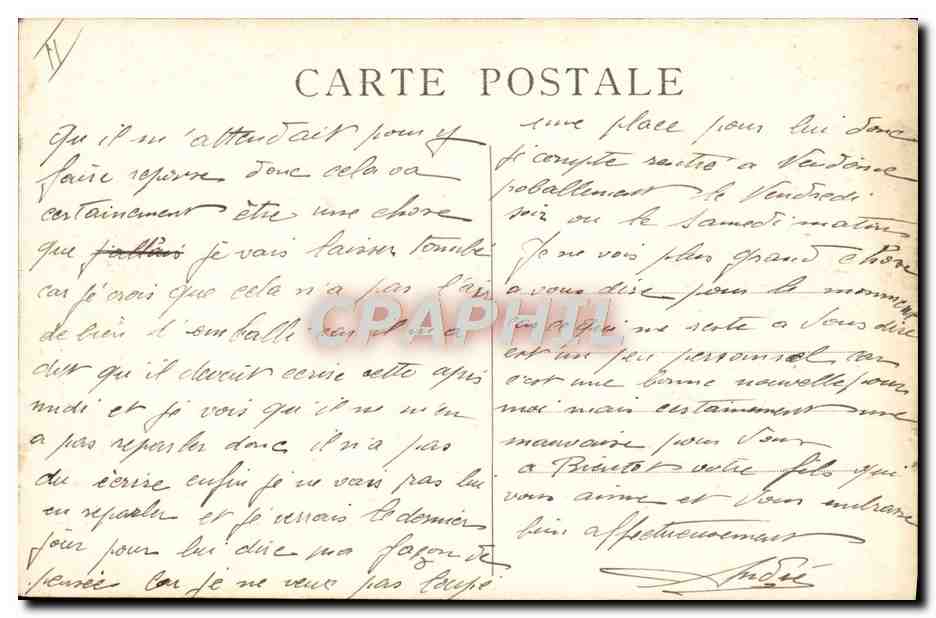 II
CARTE POSTALE
Qu il m'attendait pour y
faire reponse donc cela va
certainement être une chose
que j'allais je vais laisser tombé
car je crois que cela n'a pas l'air
de bien l'emballé car il m'a
dit qu'il devait ecrire cette apres
midi et je vois qu'il ne m'en
a pas reparler donc il n'a pas
du écrire enfin je ne vais pas lui
en reparler et je verrais le dernier
jour pour lui dire ma façon de
pensée car je ne veux pas loupé
une place pour lui donc
je compte rentré a Vendôme
poballement le Vendredi
soir ou le Samedi matin
Je ne vois plus grand chose
a vous dire pour le moment
car ce qui me reste a vous dire
est un peu personnel car
c'est une bonne nouvelle pour
moi mais certainement une
mauvaise pour vous
a Bientot votre fils qui
vous aime et vous embrasse
bien affectueusement
André
CPAPHIL